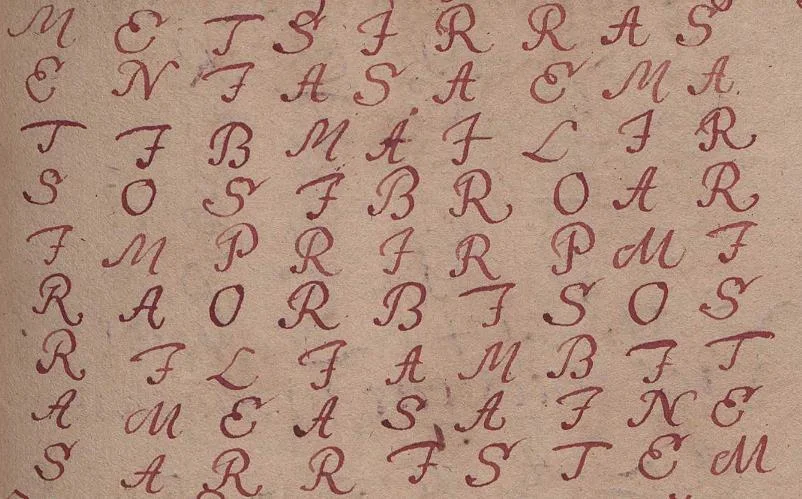 M E T S I R R A S
E N I A S A E M A
T I B M A I L I R
S O S I B R O A R
I M P R I R P M I
R A O R B I S O S
R I L I A M B I T
A M E A S A I N E
S A R R I S T E M